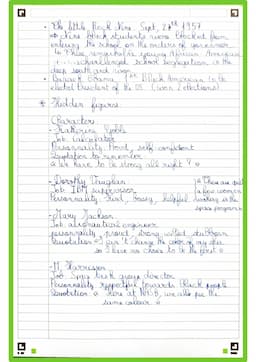 • The little Rock Nine Sept, 24th 1957
⇒ Nine black students were blocked from
entering the school on the orders of governor
⇒ These remarkable young African Americans
challenged school segregation in the
deep south and won.
• Barack Obama, 1st Black American to be
elected President of the US (won 2 elections)
* Hidden figures
Characters
- Katherine Goble
Job: calculator
Personality: Proud, self confident
Quotation to remember
« We have to be strong all right? »
- Dorothy Vaughan
Job: IBM supervisor
Personality: Kind, bossy, helpful
⇒ There are quite
a few women
working at the
space program
- Mary Jackson
Job: aeronautical engineer
personality: proud, strong-willed, stubborn
Quotation « I can't change the color of my skin
so I have no choice to be the first »
- M. Harrison
Job: Space task group director
Personality: respectful towards Black people
Quotation « Here at NASA, we all pee the
same colour »